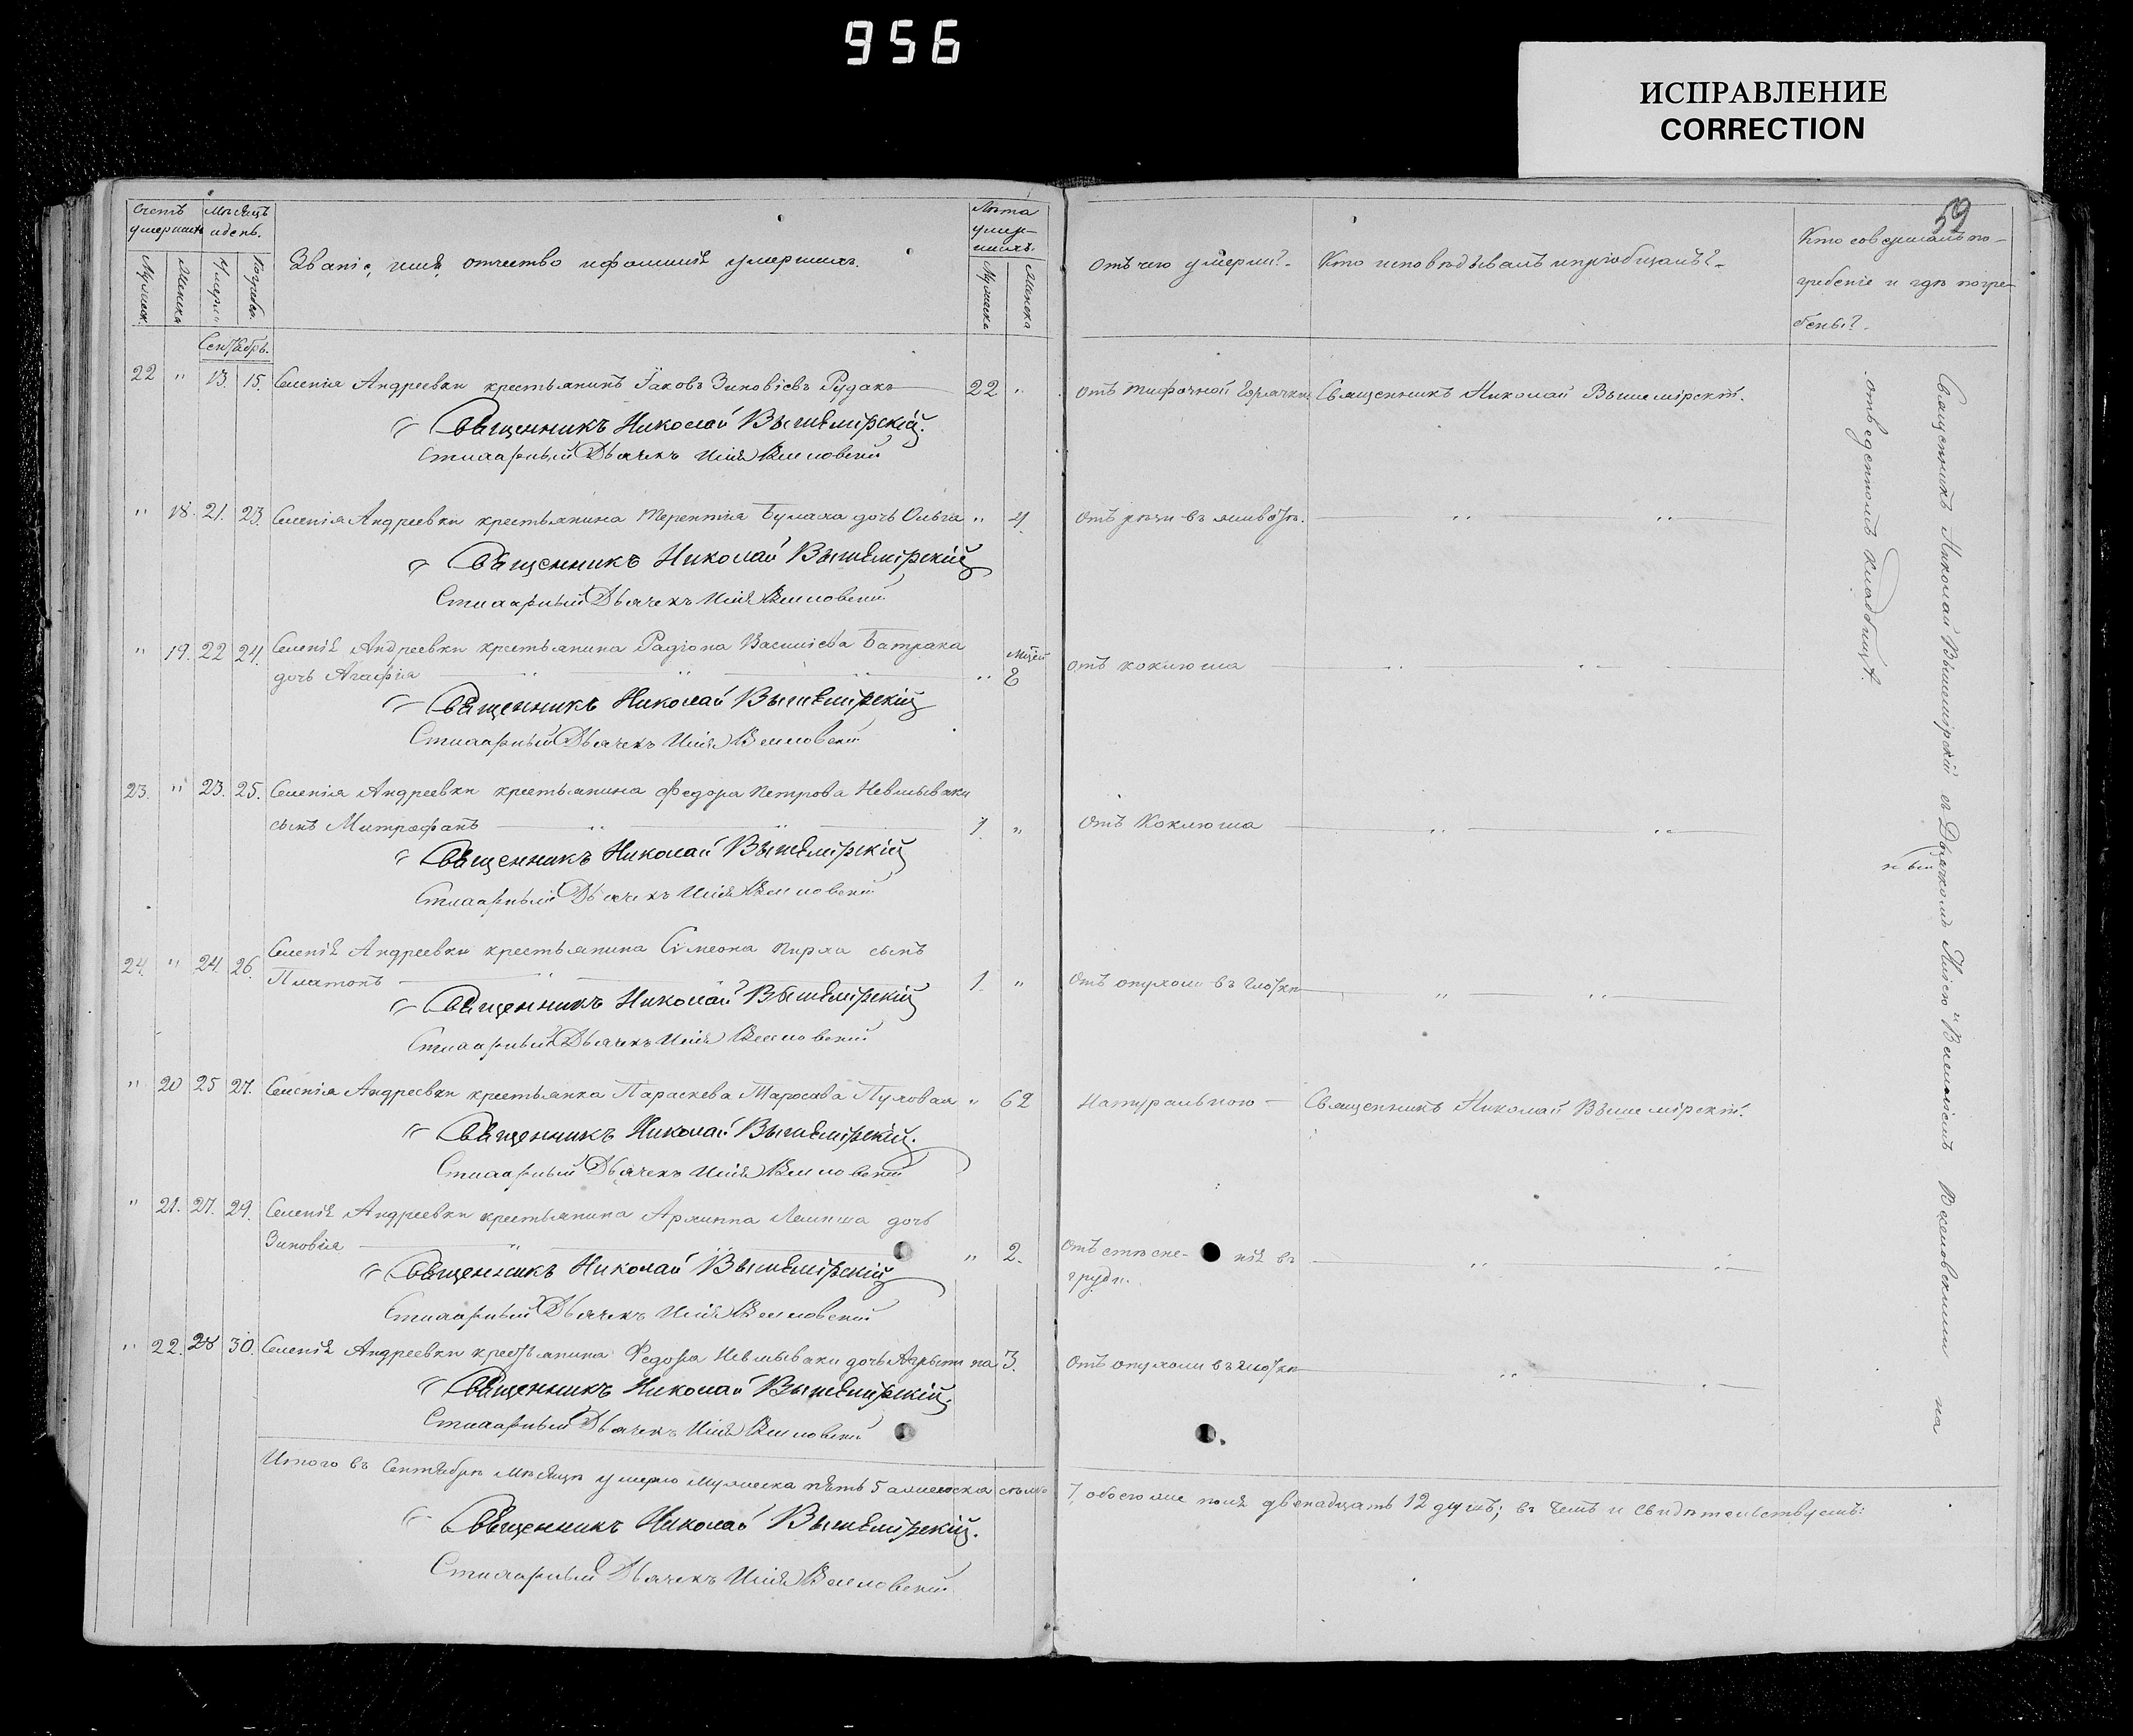 956
ИСПРАВЛЕНИЕ
CORRECTION
59
Счетъ умершихъ
Мѣсяцъ и день.
Званіе, имя, отчество и фамилія умершихъ.
Лѣта умер-
шихъ.
Мужеск.
Женска
Умерш.
Погребен.
Мужеска
Женска
Отъ чего умерли?
Кто исповѣдывалъ и пріобщалъ?
Кто совершалъ по-
гребеніе и гдѣ погре-
бены?
Сентябрь.
22 " 13. 15. Селенія Андреевки крестьянинъ Іаковъ Зиновіевъ Рудакъ 22 " Отъ тифочной горячки Священникъ Николай Вышемірскій.
Священникъ Николай Вышемірскій.
Стихарный Дьячекъ Илія
" 18. 21. 23. Селенія Андреевки крестьянина Терентія Булаха дочь Ольга " 4. Отъ рѣзи въ животѣ.
Священникъ Николай Вышемірскій
Стихарный Дьячекъ Илія
" 19. 22 24. Селенія Андреевки крестьянина Радіона Василіева Батрака
дочь Агафія " мцей 8 Отъ коклюша
Священникъ Николай Вышемірскій
Стихарный Дьячекъ Илія
23. " 23. 25. Селенія Андреевки крестьянина Федора Петрова Невмываки
сынъ Митрофанъ 1. " Отъ Коклюша
Священникъ Николай Вышемірскій
Стихарный Дьячекъ Илія
24. " 24. 26. Селенія Андреевки крестьянина Симеона Пирха сынъ
Платонъ 1. " Отъ опухоли въ глоткѣ
Священникъ Николай Вышемірскій
Стихарный Дьячекъ Илія
" 20 25 27. Селенія Андреевки крестьянка Параскева Тарасова Пуховая " 62 Натуральною Священникъ Николай Вышемірскій.
Священникъ Николай Вышемірскій.
Стихарный Дьячекъ Илія
" 21. 27. 29. Селенія Андреевки крестьянина Архиппа дочь
Зиновія " 2. Отъ стѣсненія въ
груди.
Священникъ Николай Вышемірскій
Стихарный Дьячекъ Илія
" 22. 28 30. Селенія Андреевки крестьянина Федора Невмываки дочь 3. Отъ опухоли въ глоткѣ
Священникъ Николай Вышемірскій.
Стихарный Дьячекъ Илія
Итого въ Сентябрѣ мѣсяцѣ умерло мужеска пять 5 а женска семь 7, обоего же пола двенадцать 12 душъ; въ чемъ и свидѣтельствуемъ:
Священникъ Николай Вышемірскій.
Стихарный Дьячекъ Илія
Священникъ Николай Вышемірскій съ Дьячкомъ Иліею на
отведенномъ кладбищѣ.